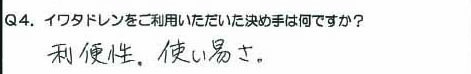 Q4. イワタドレンをご利用いただいた決め手は何ですか？
利便性、使い易さ。